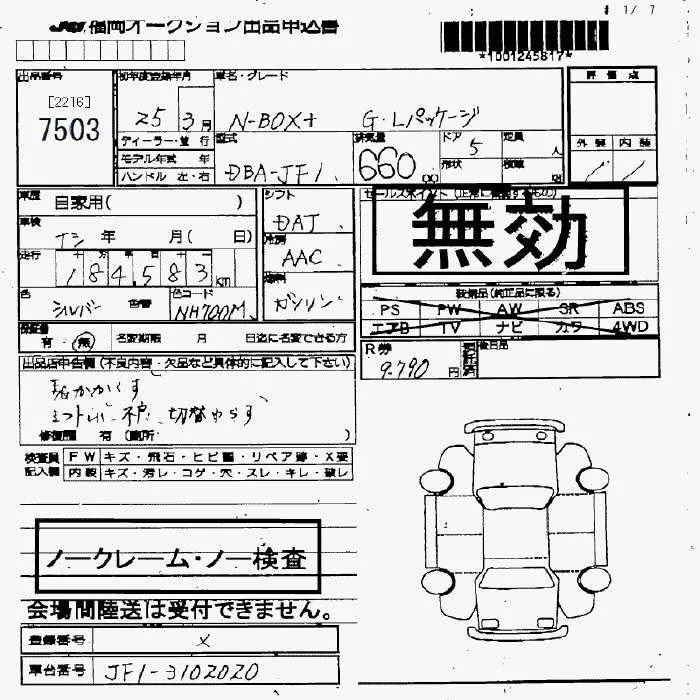 # 1/ 7
福岡オークション出品申込書
*1001245817*
出品番号
[2216]
7503
初年度登録年月
25 3月
車名・グレード
N-BOX+ G・Lパッケージ
評価点
外装 内装
ディーラー・並行
モデル年式 年
ハンドル 左・右
型式
DBA-JF1
排気量
660 cc
ドア
5
形状
定員
人
積載
車歴
自家用( )
車検
ナシ 年 月( 日)
走行
十 万 千 百 十
184,583 km
色
シルバー
色替
色コード
NH700M
シフト
DAT
冷房
AAC
燃料
ガソリン
セールスポイント(正常に機能するもの)
無効
装備品(純正品に限る)
PS PW AW SR ABS
エアB TV ナビ カワ 4WD
R券
9,790 円
後日品
保証書
有・無
名変期限 月 日迄に名変できる方
出品店申告欄(不良内容・欠品など具体的に記入して下さい)
修復歴 有(箇所: )
検査員記入欄
FW キズ・飛石・ヒビ・リペア跡・X要
内装 キズ・汚レ・コゲ・穴・スレ・キレ・破レ
ノークレーム・ノー検査
会場間陸送は受付できません。
登録番号 ×
車台番号 JF1-3102020